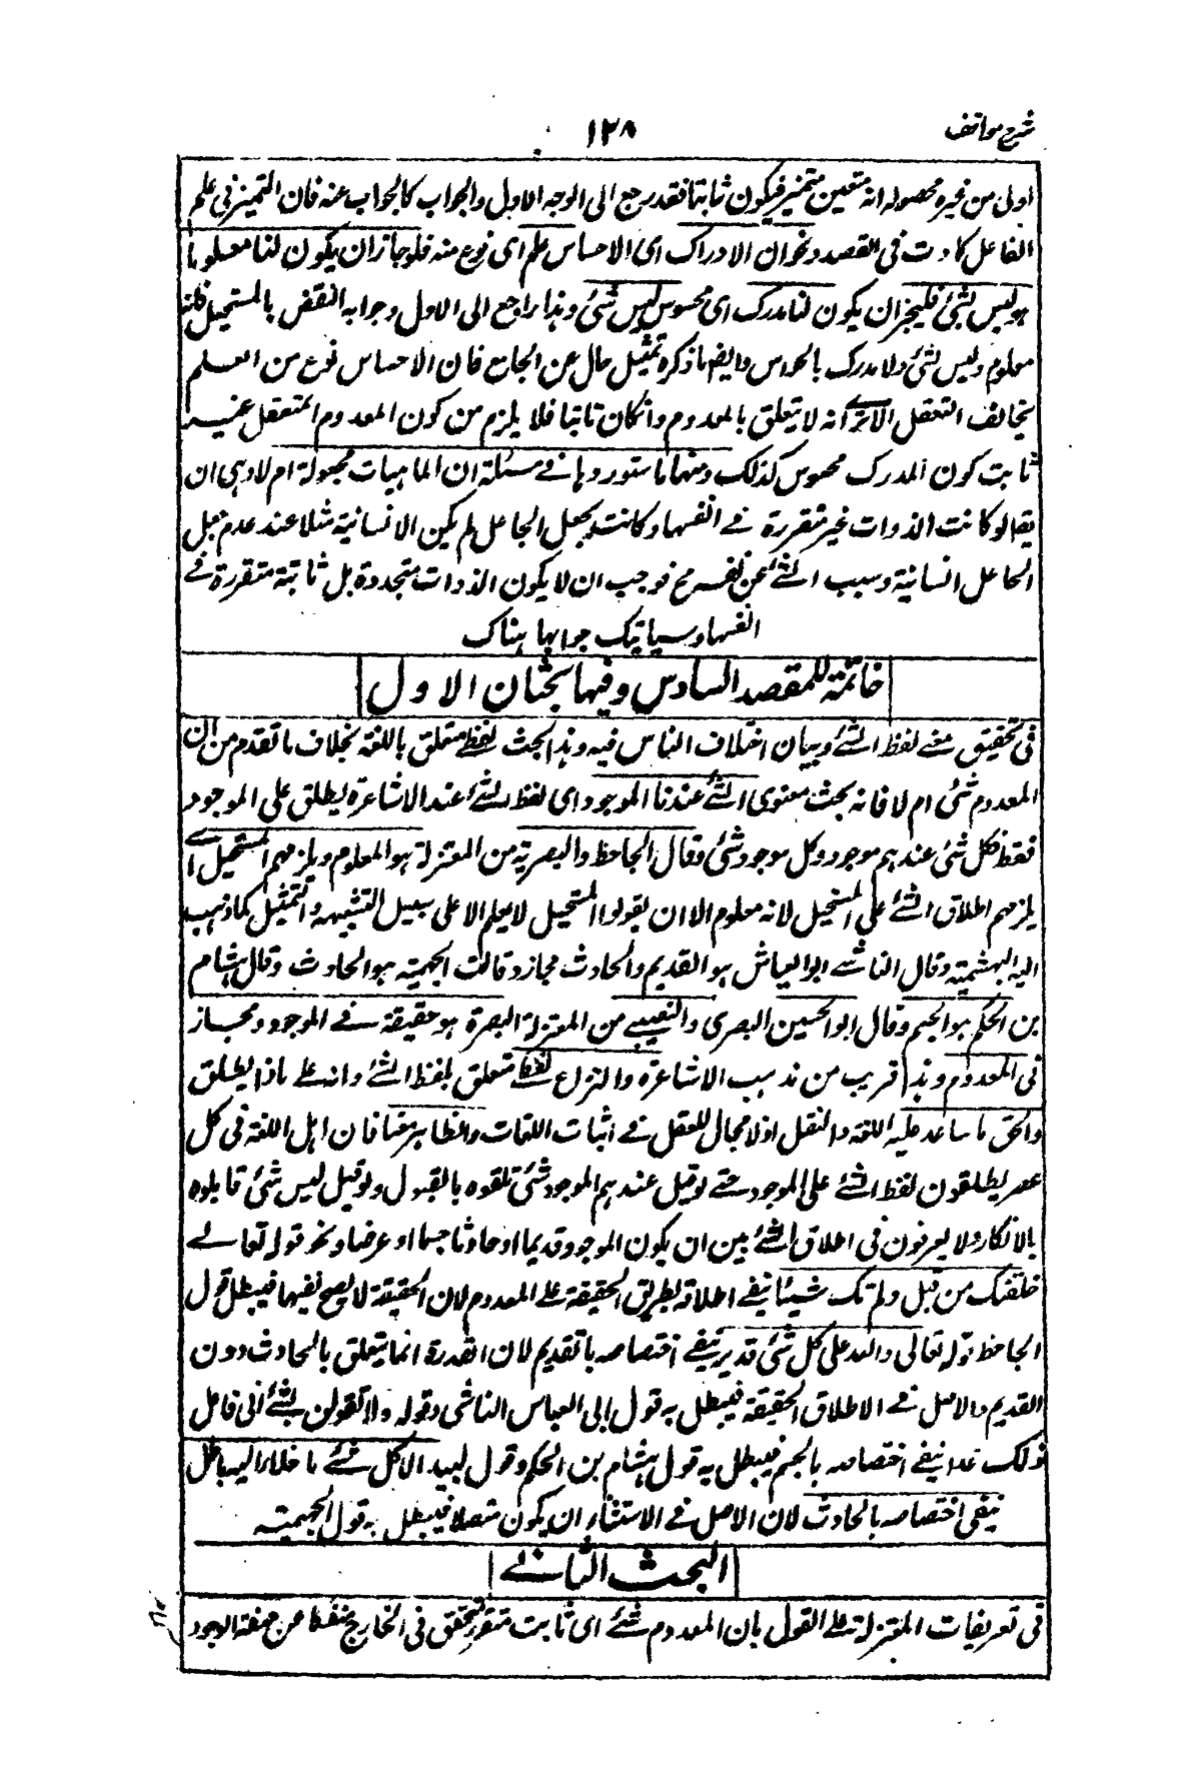 شرح مواقف
١٢٨
اولى من غيره محصوله انه متعين متميز فيكون ثابتا فقد رجع الى الوجه الاول والجواب كالجواب عنه فان التميز فى علم
الفاعل كادت فى القصد ونحو ان الادراك اى الاحساس علم اى نوع منه فلو جاز ان يكون لنا معلوما
هو ليس بشئ فليجز ان يكون لنا مدرك اى محسوس ليس شئ وهذا راجع الى الاول وجوابه النقض بالمستحيل فانه
معلوم وليس بشئ ولا مدرك بالحواس وايضا ما ذكره تمثيل خال عن الجامع فان الاحساس نوع من العلم
يخالف التعقل الا ترى انه لا يتعلق بالمعدوم وان كان ثابتا فلا يلزم من كون المعدوم المتعقل غير
ثابت كون المدرك محسوس كذلك ومنها ما ستوردها فى مسئلة ان الماهيات مجعولة ام لا وهى ان
يقال لو كانت الذوات غير متقررة فى انفسها وكانت بجعل الجاعل لم يكن الانسانية مثلا عند عدم جعل
الجاعل انسانية وسلب الشئ عن نفسه مح فوجب ان لا يكون الذوات متجددة بل ثابتة متقررة فى
انفسها وسياتيك جوابها هناك
خاتمة للمقصد السادس وفيها بحثان الاول
فى تحقيق معنى لفظ الشئ وبيان اختلاف الناس فيه وهذا البحث لفظى متعلق باللغة بخلاف ما تقدم من ان
المعدوم شئ ام لا فانه بحث معنوى الشئ عندنا الموجود اى لفظ الشئ عند الاشاعرة يطلق على الموجود
فقط فكل شئ عندهم موجود وكل موجود شئ وقال الجاحظ والبصرية من المعتزلة هو المعلوم ويلزمهم المستحيل اى
يلزمهم اطلاق الشئ على المستحيل لانه معلوم الا ان يقولوا المستحيل لا يعلم الا على سبيل التشبيه والتمثيل كما ذهب
اليه البهشمية وقال الناشى ابو العباس هو القديم والحادث مجاز وقالت الجهمية هو الحادث وقال هشام
بن الحكم هو الجسم وقال ابو الحسين البصرى والنصيبى من المعتزلة البصرة هو حقيقة فى الموجود ومجاز
فى المعدوم وهذا قريب من مذهب الاشاعرة والنزاع لفظى متعلق بلفظ الشئ وانه على ماذا يطلق
والحق ما ساعد عليه اللغة والنقل اذ لا مجال للعقل فى اثبات اللغات والظاهر معنا فان اهل اللغة فى كل
عصر يطلقون لفظ الشئ على الموجود حتى لو قيل عندهم الموجود شئ تلقوه بالقبول ولو قيل ليس شئ قابلوه
بالانكار ولا يعرفون فى اطلاق الشئ بين ان يكون الموجود قديما او حادثا جسما او عرضا ونحو قوله تعالى
خلقتك من قبل ولم تك شيئا ينفى اطلاقه بطريق الحقيقة على المعدوم لان الحقيقة لا يصح نفيها فيبطل قول
الجاحظ قوله تعالى والله على كل شئ قدير ينفى اختصاصه بالقديم لان القدرة انما يتعلق بالحادث دون
القديم والاصل فى الاطلاق الحقيقة فيبطل به قول ابى العباس الناشى وقوله ولا تقولن لشئ انى فاعل
ذلك غدا ينفى اختصاصه بالجسم فيبطل به قول هشام بن الحكم وقول لبيد الا كل شئ ما خلا الله باطل
ينفى اختصاصه بالحادث لان الاصل فى الاستثناء ان يكون متصلا فيبطل به قول الجهمية
البحث الثانى
فى تعريفات المعتزلة على القول بان المعدوم شئ اى ثابت متقرر متحقق فى الخارج منفكا عن صفة الوجود